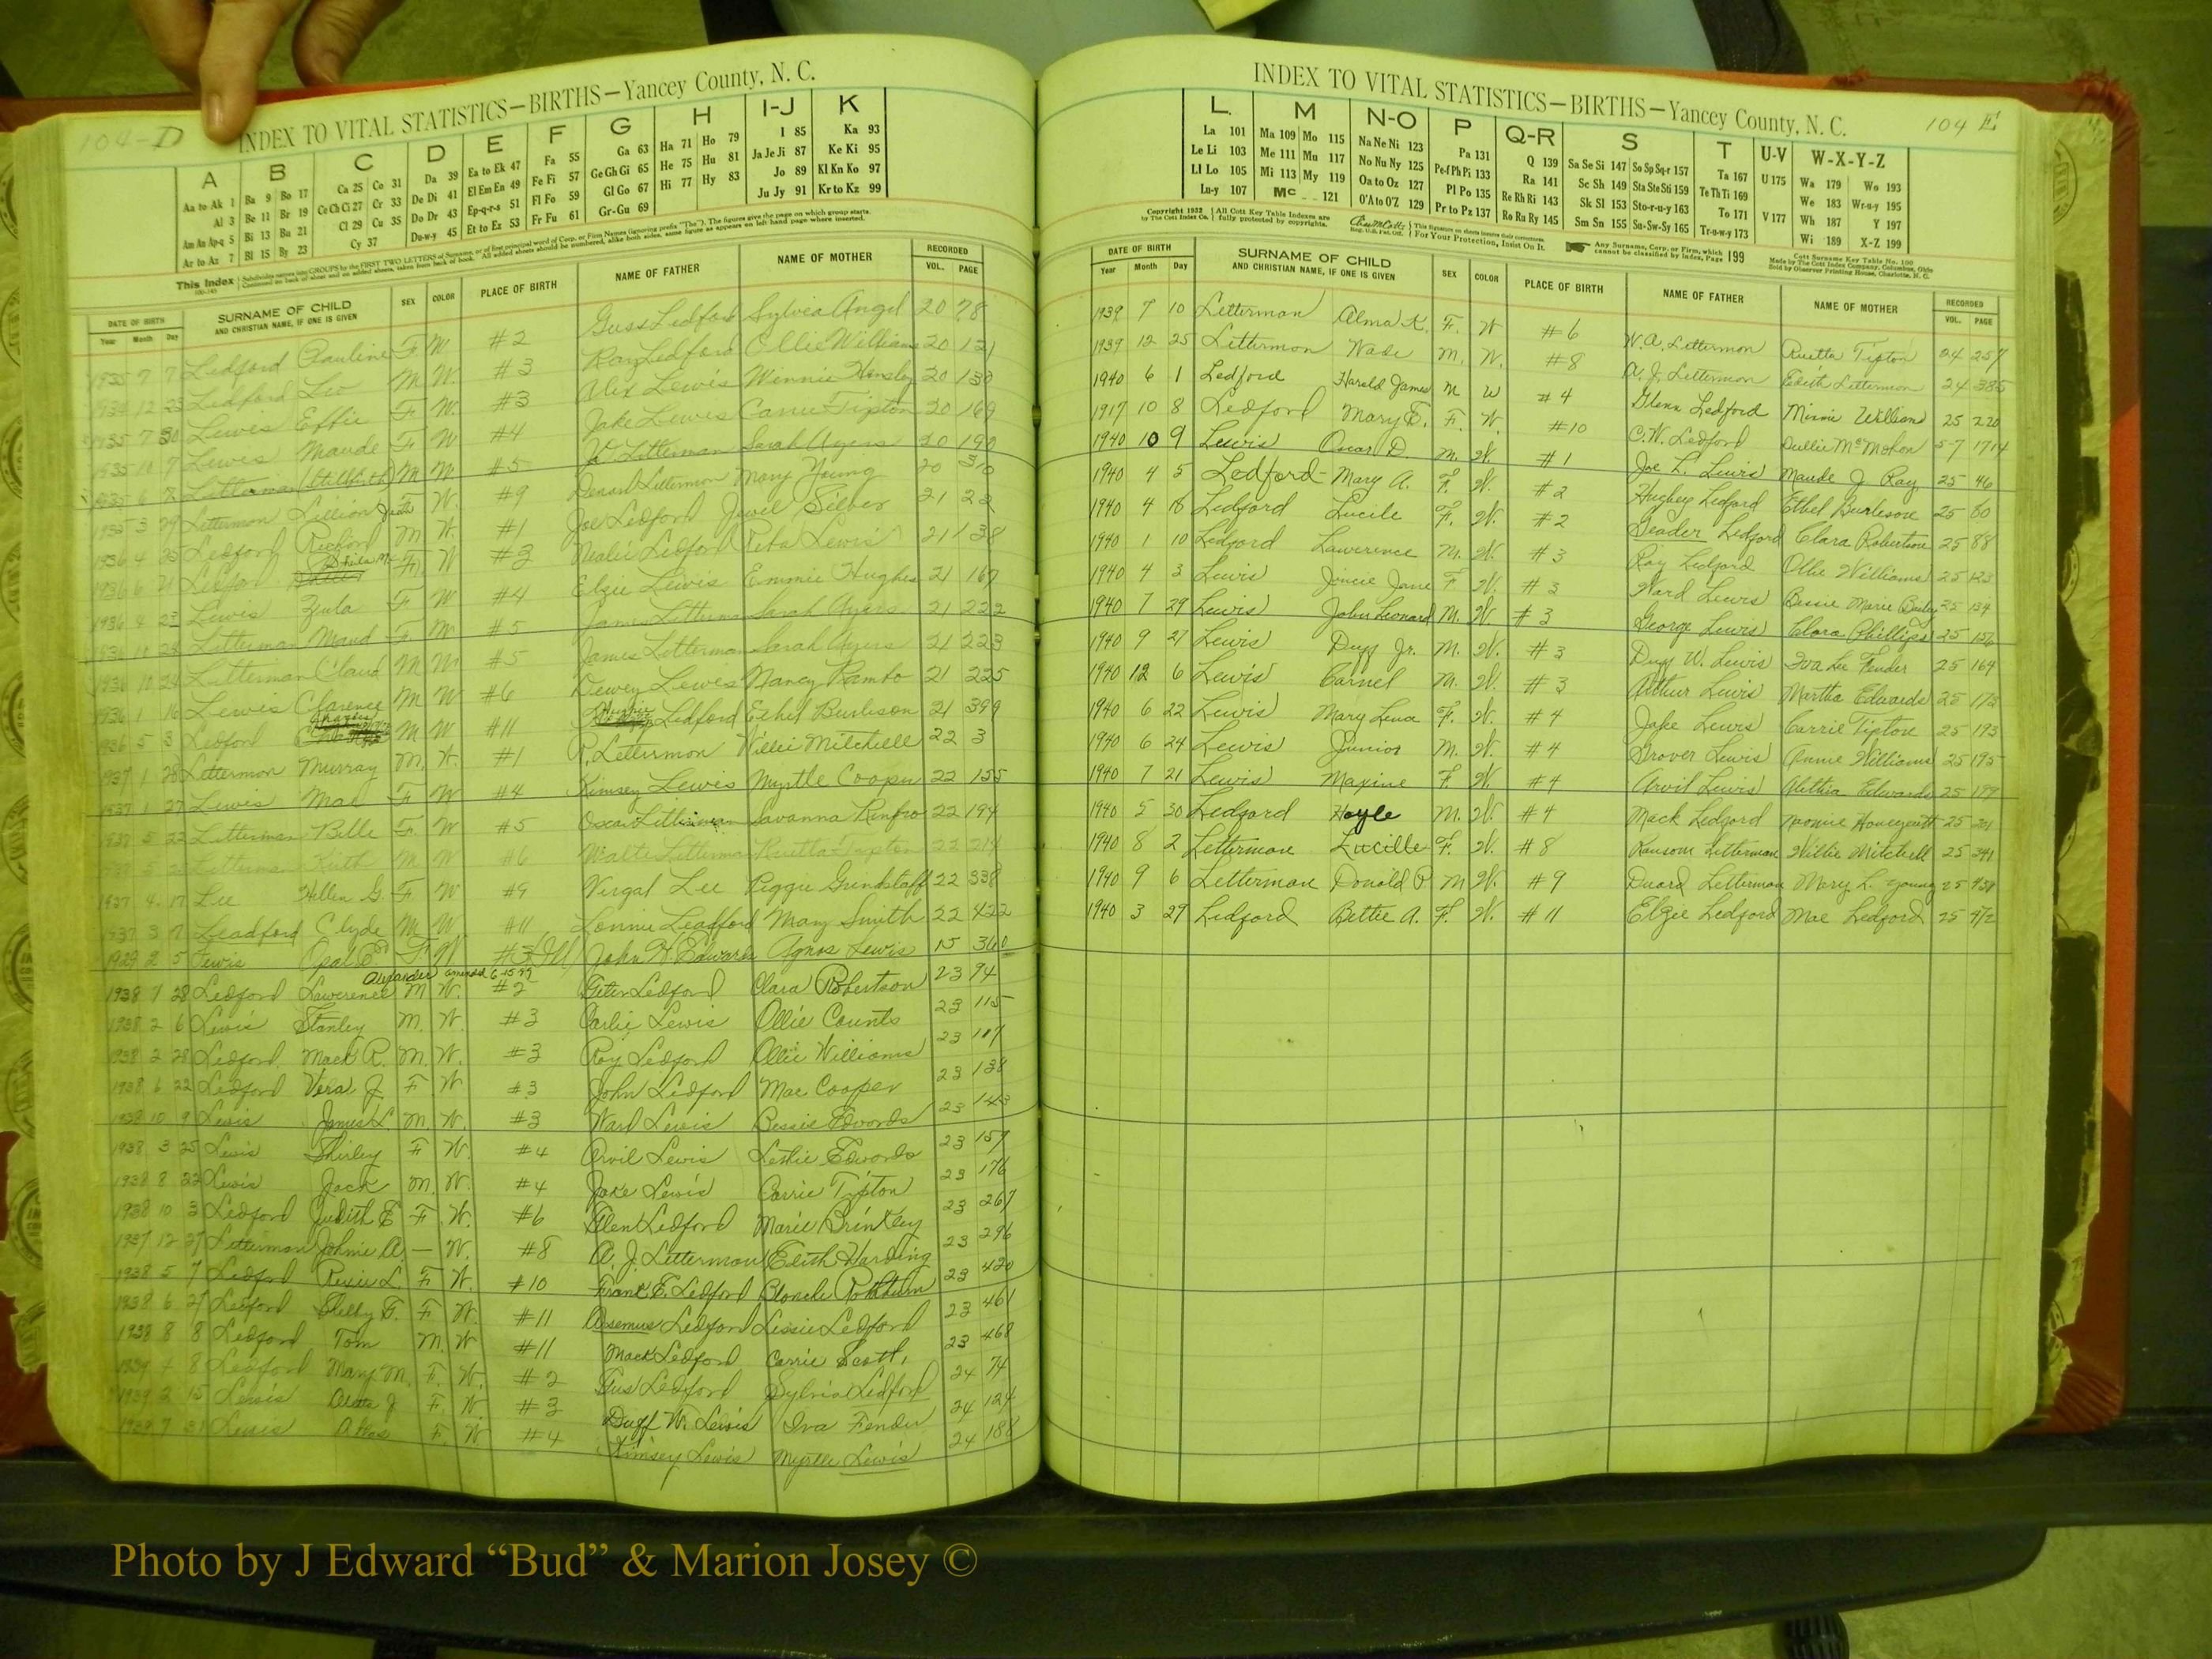 104-D
INDEX TO VITAL STATISTICS—BIRTHS—Yancey County, N. C.
A B C D E F G H I-J K
Aa to Ak 1 Ba 9 Bo 17 Ca 25 Co 31 Da 39 Ea to Ek 47 Fa 55 Ga 63 Ha 71 Ho 79 I 85 Ka 93
Al 3 Be 11 Br 19 Ce Ch Ci 27 Cr 33 De Di 41 El Em En 49 Fe Fi 57 Ge Gh Gi 65 He 75 Hu 81 Ja Je Ji 87 Ke Ki 95
Am An Ap-q 5 Bi 13 Bu 21 Cl 29 Cu 35 Do Dr 43 Ep-q-r-s 51 Fl Fo 59 Gl Go 67 Hi 77 Hy 83 Jo 89 Kl Kn Ko 97
Ar to Az 7 Bl 15 By 23 Cy 37 Du-w-y 45 Et to Ez 53 Fr Fu 61 Gr-Gu 69 Ju Jy 91 Kr to Kz 99
This Index
DATE OF BIRTH SURNAME OF CHILD SEX COLOR PLACE OF BIRTH NAME OF FATHER NAME OF MOTHER RECORDED
Year Month Day AND CHRISTIAN NAME, IF ONE IS GIVEN VOL. PAGE
Ledford Pauline F W #2 Guss Ledford Sylvia Angel 20 78
Ledford Leo M W. #3 Roy Ledford Ollie Williams 20 121
1935 7 30 Lewis Effie F W. #3 Alex Lewis Winnie Hensley 20 130
1935 11 9 Lewis Maude F W #4 Jake Lewis Carrie Tipton 20 169
Letterman M W. #5 W. Letterman Sarah Ayers 20 190
1935 3 29 Letterman Lillian F W. #9 Letterman Mary Young 20 310
1936 4 25 Ledford Richard M W. #1 Joe Ledford Jewel Silver 21 22
1936 6 21 Ledford F. W #3 Nealie Ledford Reba Lewis 21 138
1936 4 23 Lewis Zula F W #4 Elzie Lewis Emmie Hughes 21 167
Letterman Maud F W #5 James Letterman Sarah Ayers 21 222
Letterman Claud M W #5 James Letterman Sarah Ayers 21 223
1936 1 16 Lewis Clarence M W #6 Dewey Lewis Nancy Rambo 21 225
1936 5 3 Ledford Charles M W #11 Ledford Ethel Burleson 21 399
1937 1 28 Lettermon Murray M. W. #1 R. Lettermon Willie Mitchell 22 3
1937 1 27 Lewis Mae F W #4 Kimsey Lewis Myrtle Cooper 22 155
1937 5 22 Letterman Bille F W #5 Oscar Letterman Savanna Renfro 22 194
Letterman Ruth M W #6 Walter Letterman Ruetta Tipton 22 214
1937 4 17 Lee Hellen G. F W #9 Virgal Lee Peggie Grindstaff 22 338
1937 3 7 Leadford Clyde M W #11 Lonnie Leadford Mary Smith 22 422
1929 2 5 Lewis Opal E. F W John H. Edwards Agnes Lewis 15 360
Alexander amended 6-15-99
1938 7 28 Ledford Lawerence M W. #2 Geter Ledford Clara Robertson 23 94
1938 2 6 Lewis Stanley M. W. #3 Carlie Lewis Ollie Counts 23 115
1938 2 28 Ledford Mack R. M. W. #3 Roy Ledford Ollie Williams 23 117
1938 6 22 Ledford Vera J. F W #3 John Ledford Mae Cooper 23 138
1938 10 9 Lewis James L. M. W. #3 Ward Lewis Bessie Edwards 23 143
1938 3 25 Lewis Shirley F W. #4 Arvil Lewis Leslie Edwards 23 157
1938 8 22 Lewis Jack M. W. #4 Jake Lewis Carrie Tipton 23 176
1938 10 3 Ledford Judith E F. W. #6 Glen Ledford Marie Brinkley 23 267
1937 12 27 Letterman Johnie A — W. #8 A. J. Letterman Edith Harding 23 296
1938 5 7 Ledford Rexie L. F. W. #10 Frank E. Ledford Blonche Rathburn 23 420
1938 6 21 Ledford Shelby G. F. W. #11 Asemus Ledford Lessie Ledford 23 461
1938 8 8 Ledford Tom M. W #11 Mack Ledford Carrie Scott, 23 468
1939 4 8 Ledford Mary M. F. W. #2 Gus Ledford Sylvia Ledford 24 74
1939 2 15 Lewis J F. W. #3 Duff W. Lewis Iva Fender 24 124
1939 7 31 Lewis F. W #4 Kimsey Lewis Myrtle Lewis 24 188
INDEX TO VITAL STATISTICS—BIRTHS—Yancey County, N. C.
104 E
L M N-O P Q-R S T U-V W-X-Y-Z
La 101 Ma 109 Mo 115 Na Ne Ni 123 Pa 131 Q 139 Sa Se Si 147 So Sp Sq-r 157 Ta 167 U 175 Wa 179 Wo 193
Le Li 103 Me 111 Mu 117 No Nu Ny 125 Pe-f Ph Pi 133 Ra 141 Sc Sh 149 Sta Ste Sti 159 Te Th Ti 169 We 183 Wr-u-y 195
Ll Lo 105 Mi 113 My 119 Oa to Oz 127 Pl Po 135 Re Rh Ri 143 Sk Sl 153 Sto-r-u-y 163 To 171 V 177 Wh 187 Y 197
Lu-y 107 Mc 121 O'A to O'Z 129 Pr to Pz 137 Ro Ru Ry 145 Sm Sn 155 Su-Sw-Sy 165 Tr-u-w-y 173 Wi 189 X-Z 199
Copyright 1932 by The Cott Index Co. All Cott Key Table Indexes are fully protected by copyrights. For Your Protection, Insist On It. Any Surname, Corp. or Firm, which cannot be classified by Index, Page 199
Cott Surname Key Table No. 100
Made by The Cott Index Company, Columbus, Ohio
Sold by Observer Printing House, Charlotte, N. C.
DATE OF BIRTH SURNAME OF CHILD SEX COLOR PLACE OF BIRTH NAME OF FATHER NAME OF MOTHER RECORDED
Year Month Day AND CHRISTIAN NAME, IF ONE IS GIVEN VOL. PAGE
1939 7 10 Letterman Alma K. F. W #6 W. A. Letterman Ruetta Tipton 24 257
1939 12 25 Lettermon Wade M. W. #8 A. J. Lettermon Edith Lettermon 24 385
1940 6 1 Ledford Harold James M W #4 Glenn Ledford Minnie Williams 25 220
1917 10 8 Ledford Mary E. F. W. #10 C. W. Ledford Dullie McMahon 5-7 1714
1940 10 9 Lewis Oscar D. M. W. #1 Joe L. Lewis Maude J. Ray 25 46
1940 4 5 Ledford Mary A. F. W. #2 Hughey Ledford Ethel Burleson 25 80
1940 4 18 Ledford Lucile F. W. #2 Geader Ledford Clara Robertson 25 88
1940 1 10 Ledford Lawerence M. W. #3 Roy Ledford Ollie Williams 25 123
1940 4 3 Lewis Jincie Jane F W. #3 Ward Lewis Bessie Marie 25 134
1940 7 29 Lewis John Leonard M. W. #3 George Lewis Clara Phillips 25 156
1940 9 27 Lewis Duff Jr. M. W. #3 Duff W. Lewis Iva Lee Fender 25 164
1940 12 6 Lewis Carnel M. W. #3 Arthur Lewis Martha Edwards 25 172
1940 6 22 Lewis Mary Lena F. W. #4 Jake Lewis Carrie Tipton 25 193
1940 6 24 Lewis Junior M. W. #4 Grover Lewis Annie Williams 25 195
1940 7 21 Lewis Maxine F. W. #4 Arvil Lewis Edwards 25 199
1940 5 30 Ledford Hoyle M. W. #4 Mack Ledford Honeycutt 25
1940 8 2 Letterman Lucille F. W. #8 Ransom Letterman Willie Mitchell 25 341
1940 9 6 Letterman Donald P M W. #9 Duard Letterman Mary L. Young 25
1940 3 29 Ledford Bettie A. F. W. #11 Elzie Ledford Mae Ledford 25 472
Photo by J Edward “Bud” & Marion Josey ©